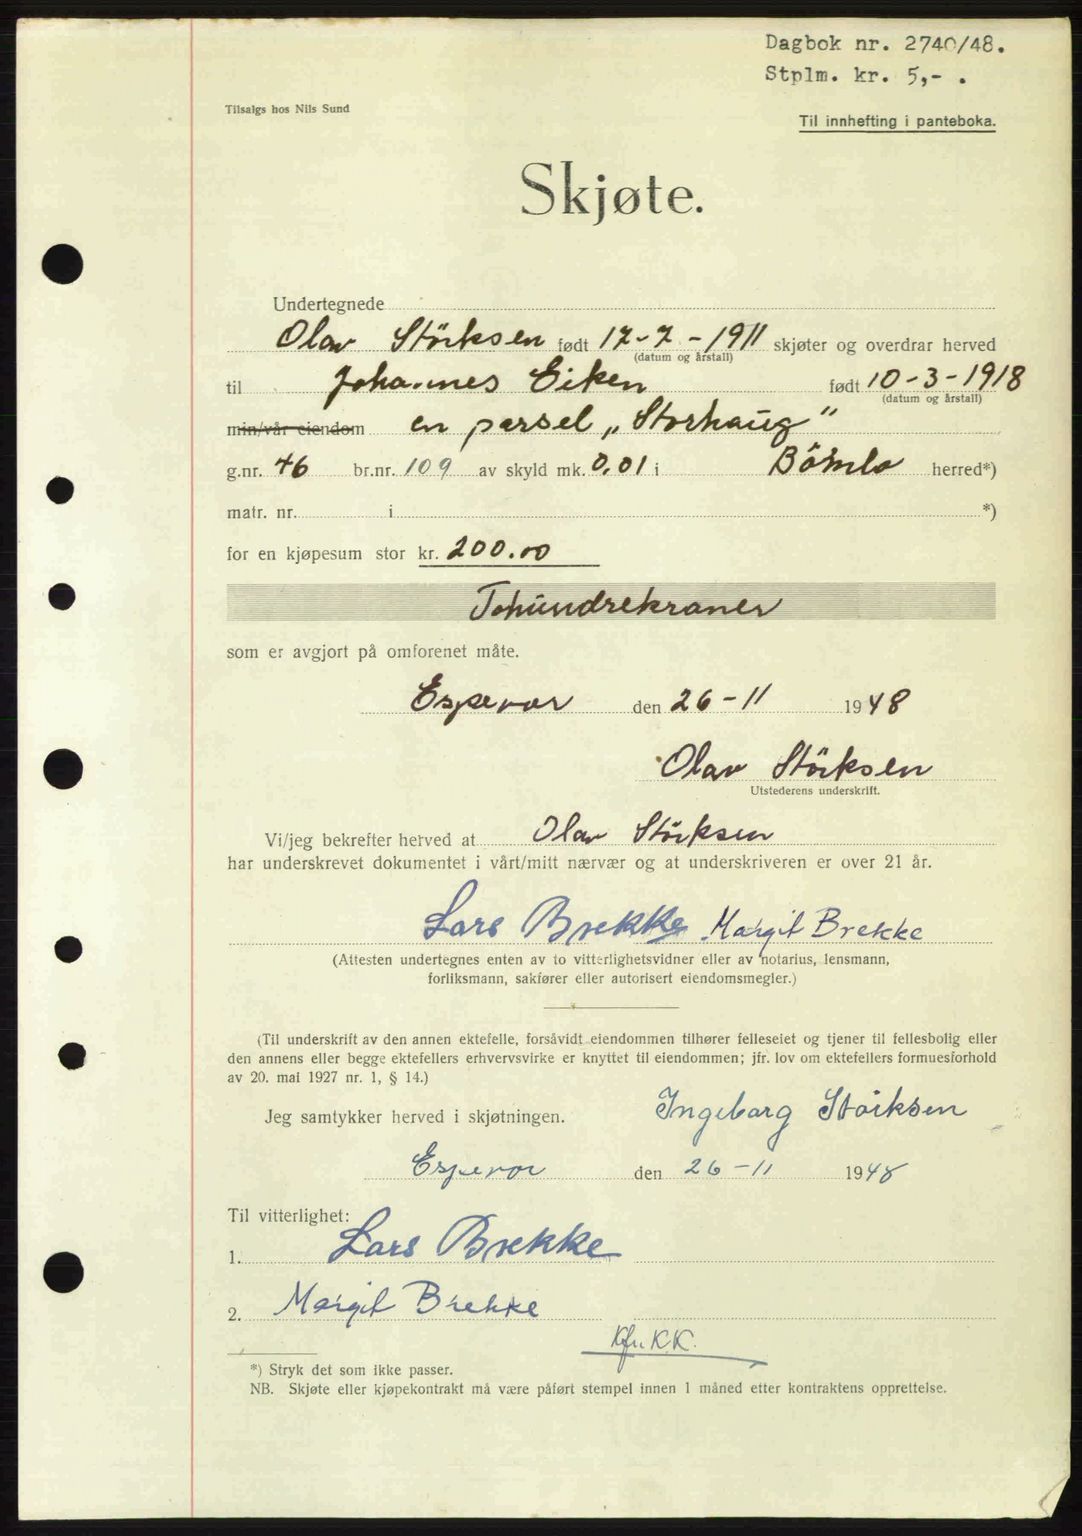 Dagbok nr. 2740/48.
Stplm. kr. 5,- .
Tilsalgs hos Nils Sund
Til innhefting i panteboka.
Skjøte.
Undertegnede
Olav Störksen født 17-7-1911 skjøter og overdrar herved
(datum og årstall)
til Johannes Eiken født 10-3-1918
(datum og årstall)
min/vår eiendom en parsel „Storhaug"
g.nr. 46 br.nr. 109 av skyld mk. 0.01 i Bömlo herred*)
matr. nr. i *)
for en kjøpesum stor kr. 200.00
Tohundrekroner
som er avgjort på omforenet måte.
Espevær den 26-11 1948
Olav Störksen
Utstederens underskrift.
Vi/jeg bekrefter herved at Olav Störksen
har underskrevet dokumentet i vårt/mitt nærvær og at underskriveren er over 21 år.
Lars Brekke Margit Brekke
(Attesten undertegnes enten av to vitterlighetsvidner eller av notarius, lensmann,
forliksmann, sakfører eller autorisert eiendomsmegler.)
(Til underskrift av den annen ektefelle, forsåvidt eiendommen tilhører felleseiet og tjener til fellesbolig eller
den annens eller begge ektefellers erhvervsvirke er knyttet til eiendommen; jfr. lov om ektefellers formuesforhold
av 20. mai 1927 nr. 1, § 14.)
Jeg samtykker herved i skjøtningen. Ingeborg Störksen
Espevær den 26-11 1948
Til vitterlighet:
1. Lars Brekke
2. Margit Brekke
K.K.
*) Stryk det som ikke passer.
NB. Skjøte eller kjøpekontrakt må være påført stempel innen 1 måned etter kontraktens opprettelse.